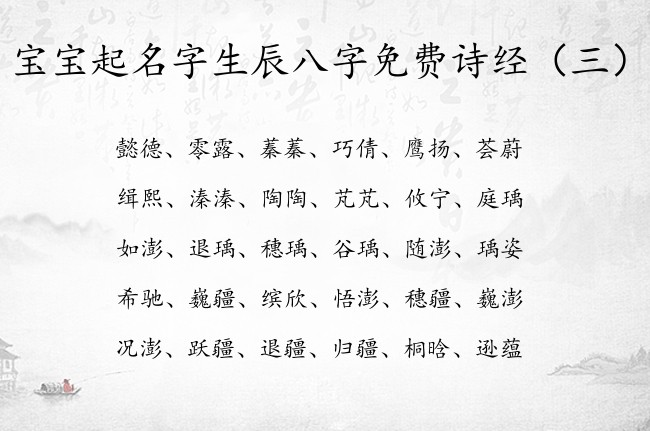 宝宝起名字生辰八字免费诗经（三）
懿德、零露、蓁蓁、巧倩、鹰扬、荟蔚
缉熙、溱溱、陶陶、芃芃、攸宁、庭瑀
如澎、退瑀、穗瑀、谷瑀、随澎、瑀姿
希驰、巍疆、缤欣、悟澎、穗疆、巍澎
况澎、跃疆、退疆、归疆、桐晗、逊蕴